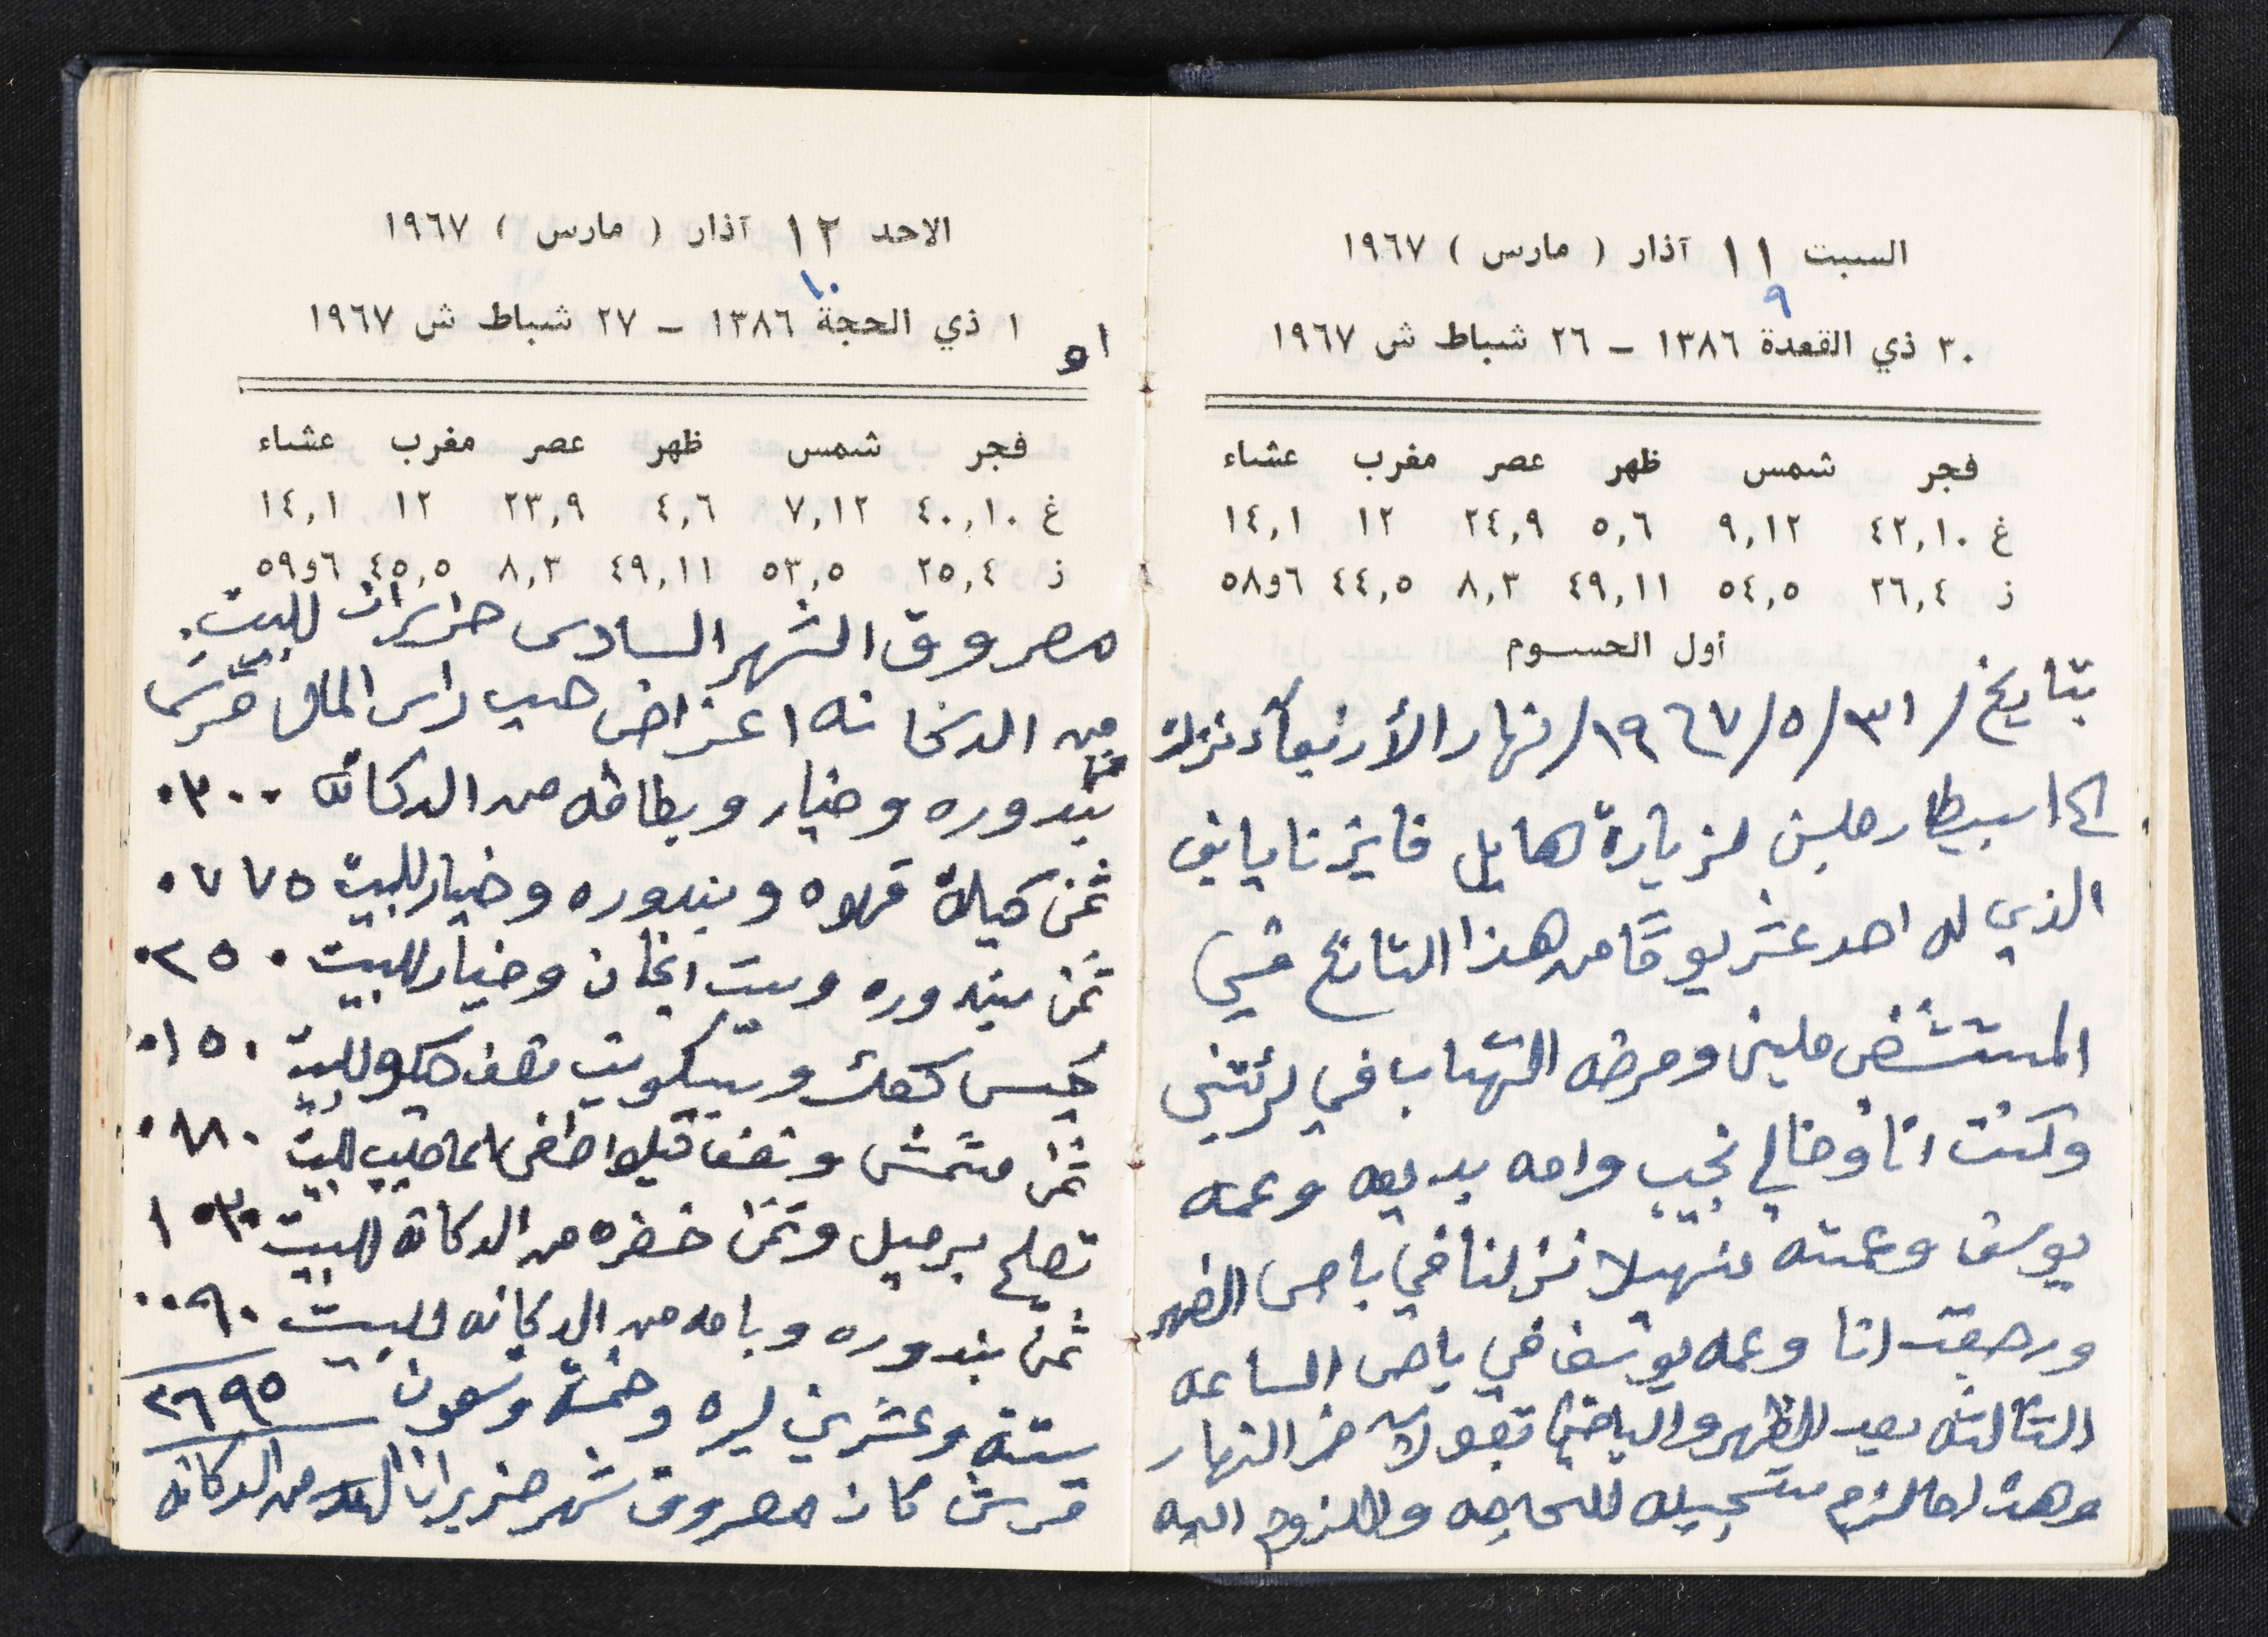 السبت ١١ آذار ( مارس ) ١٩٦٧
٩
٣٠ ذي القعدة ١٣٨٦ - ٢٦ شباط ش ١٩٦٧
فجر شمس ظهر عصر مغرب عشاء
غ ٤٢,١٠ ٩,١٢ ٥,٦ ٢٤,٩ ١٢ ١٤,١
ز ٢٦,٤ ٥٤,٥ ٤٩,١١ ٨,٣ ٤٤,٥ ٦و٥٨
أول الحسوم
بتاريخ / ٣١/٥/١٩٦٧/ نهار الأربعاء نزلت
الى اسبيطار ملبن لزيارة هايل فايز
الذي له احد عشر يومًا من هذا التاريخ في
المستشفى ملبن ومرضه التهاب في رئتيني
وكنت انا وخالي نجيب وامه بديعه وعمه
يوسف وعمته منهيلا نزلنا في باص الظهر
ورجعت انا وعمه يوسف في باص الساعه
الثالثه بعد الظهر والباقيا اخر النهار
وهذا ما لزم تسجيله للحاجه واللزوم اليه
الاحد ١٢ آذار ( مارس ) ١٩٦٧
١٠
١ ذي الحجة ١٣٨٦ - ٢٧ شباط ش ١٩٦٧
او
فجر شمس ظهر عصر مغرب عشاء
غ ٤٠,١٠ ٧,١٢ ٤,٦ ٢٣,٩ ١٢ ١٤,١
ز ٢٥,٤ ٥٣,٥ ٤٩,١١ ٨,٣ ٤٥,٥ ٦و٥٩
مصروق الشهر السادس حزيران للبيت.
من الدكانه اغراض حسب راس المال قرش
بندوره وخيار وبطاطه من الدكانه ٠٣٠٠
ثمن كيلة قهوه وبندوره وخيار للبيت ٠٧٧٥
ثمن بندوره وبيت انجان وخيار للبيت ٠٢٥٠
كيس كعك وبيسكويت نصف كيلو للبيت ٠١٥٠
ثمن مشمش ونصف كيلو للبيت ٠١٨٠
تصليح برميل وثمن خضره من الدكانه للبيت
ثمن بندوره وبامه من الدكانه للبيت ٠٠٩٠
ستة وعشرين ليره وخمسة وتسعون ٢٦٩٥
قرش كان مصروق شهر حزيران من الدكانه